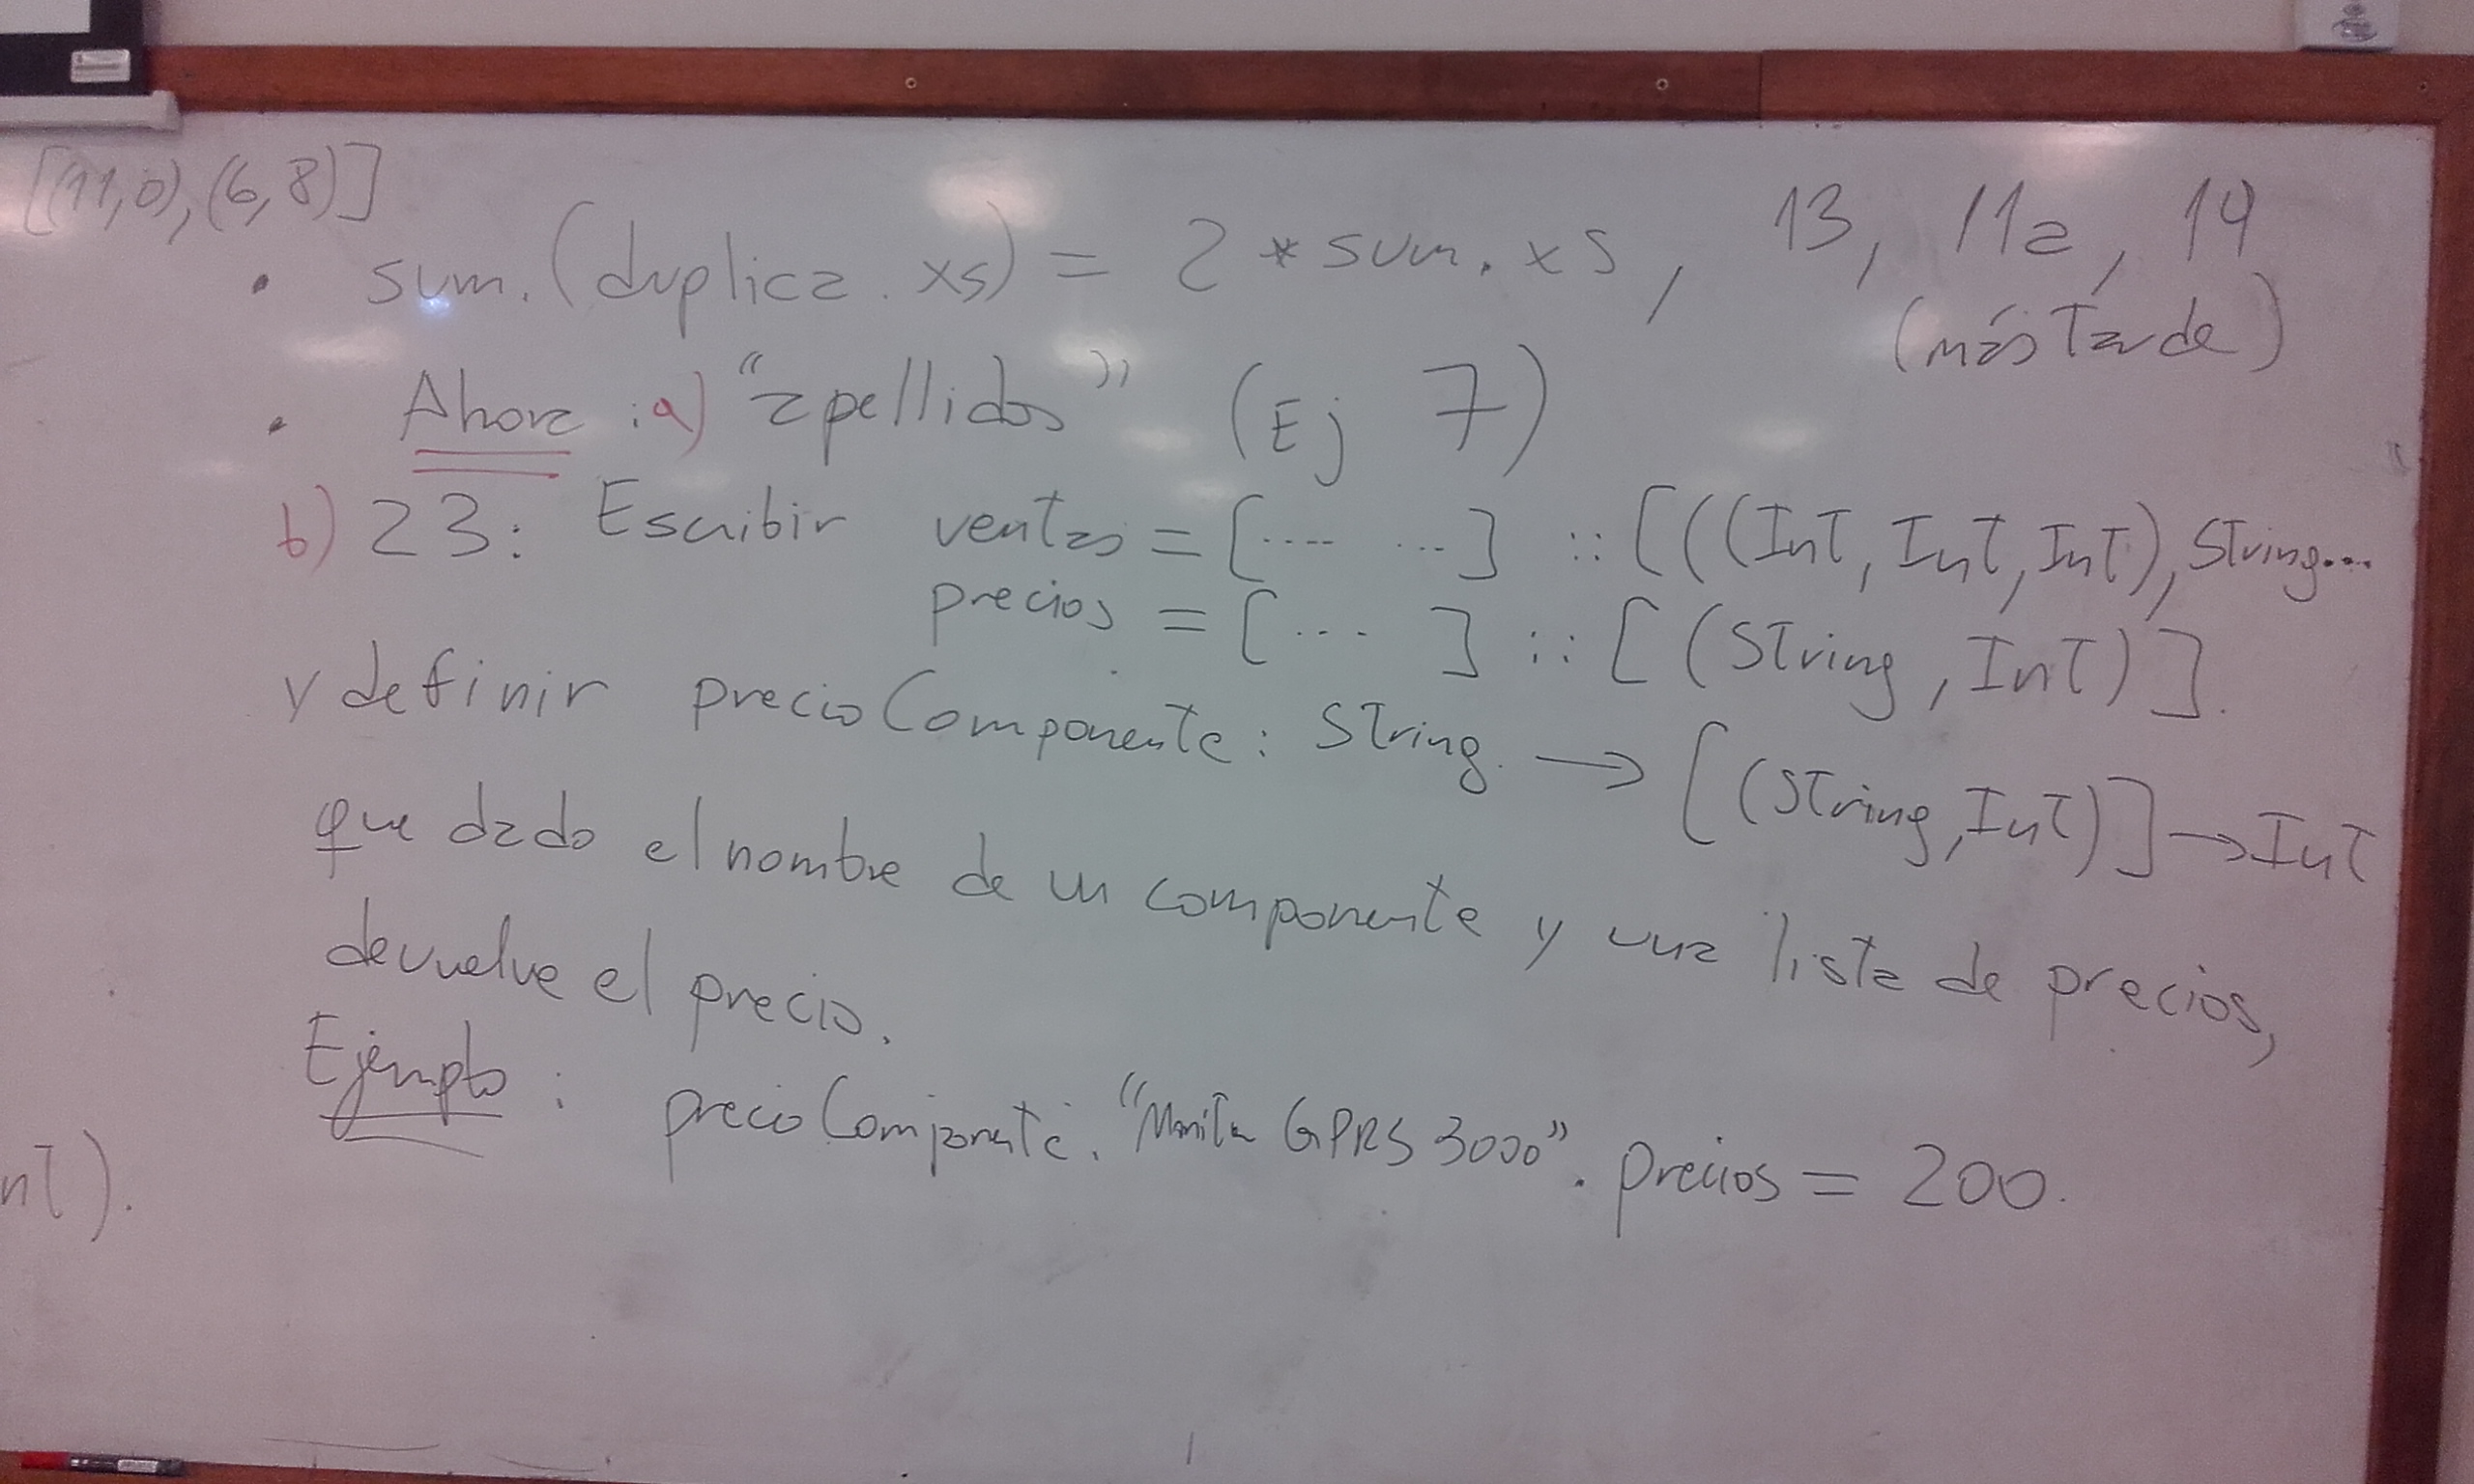 [(11,0),(6,8)]
• sum.(duplica.xs) = 2 * sum.xs, 13, 11a, 14
(más Tarde)
• Ahora : a) "apellidos" (Ej 7)
b) 23: Escribir ventas = [.... ...] :: [((Int, Int, Int), String...
precios = [... ] :: [(String, Int)].
y definir precioComponente: String → [(String, Int)] → Int
que dado el nombre de un componente y una lista de precios,
devuelve el precio.
Ejemplo : precioComponente. "Monitor GPRS 3000". precios = 200.
nt).